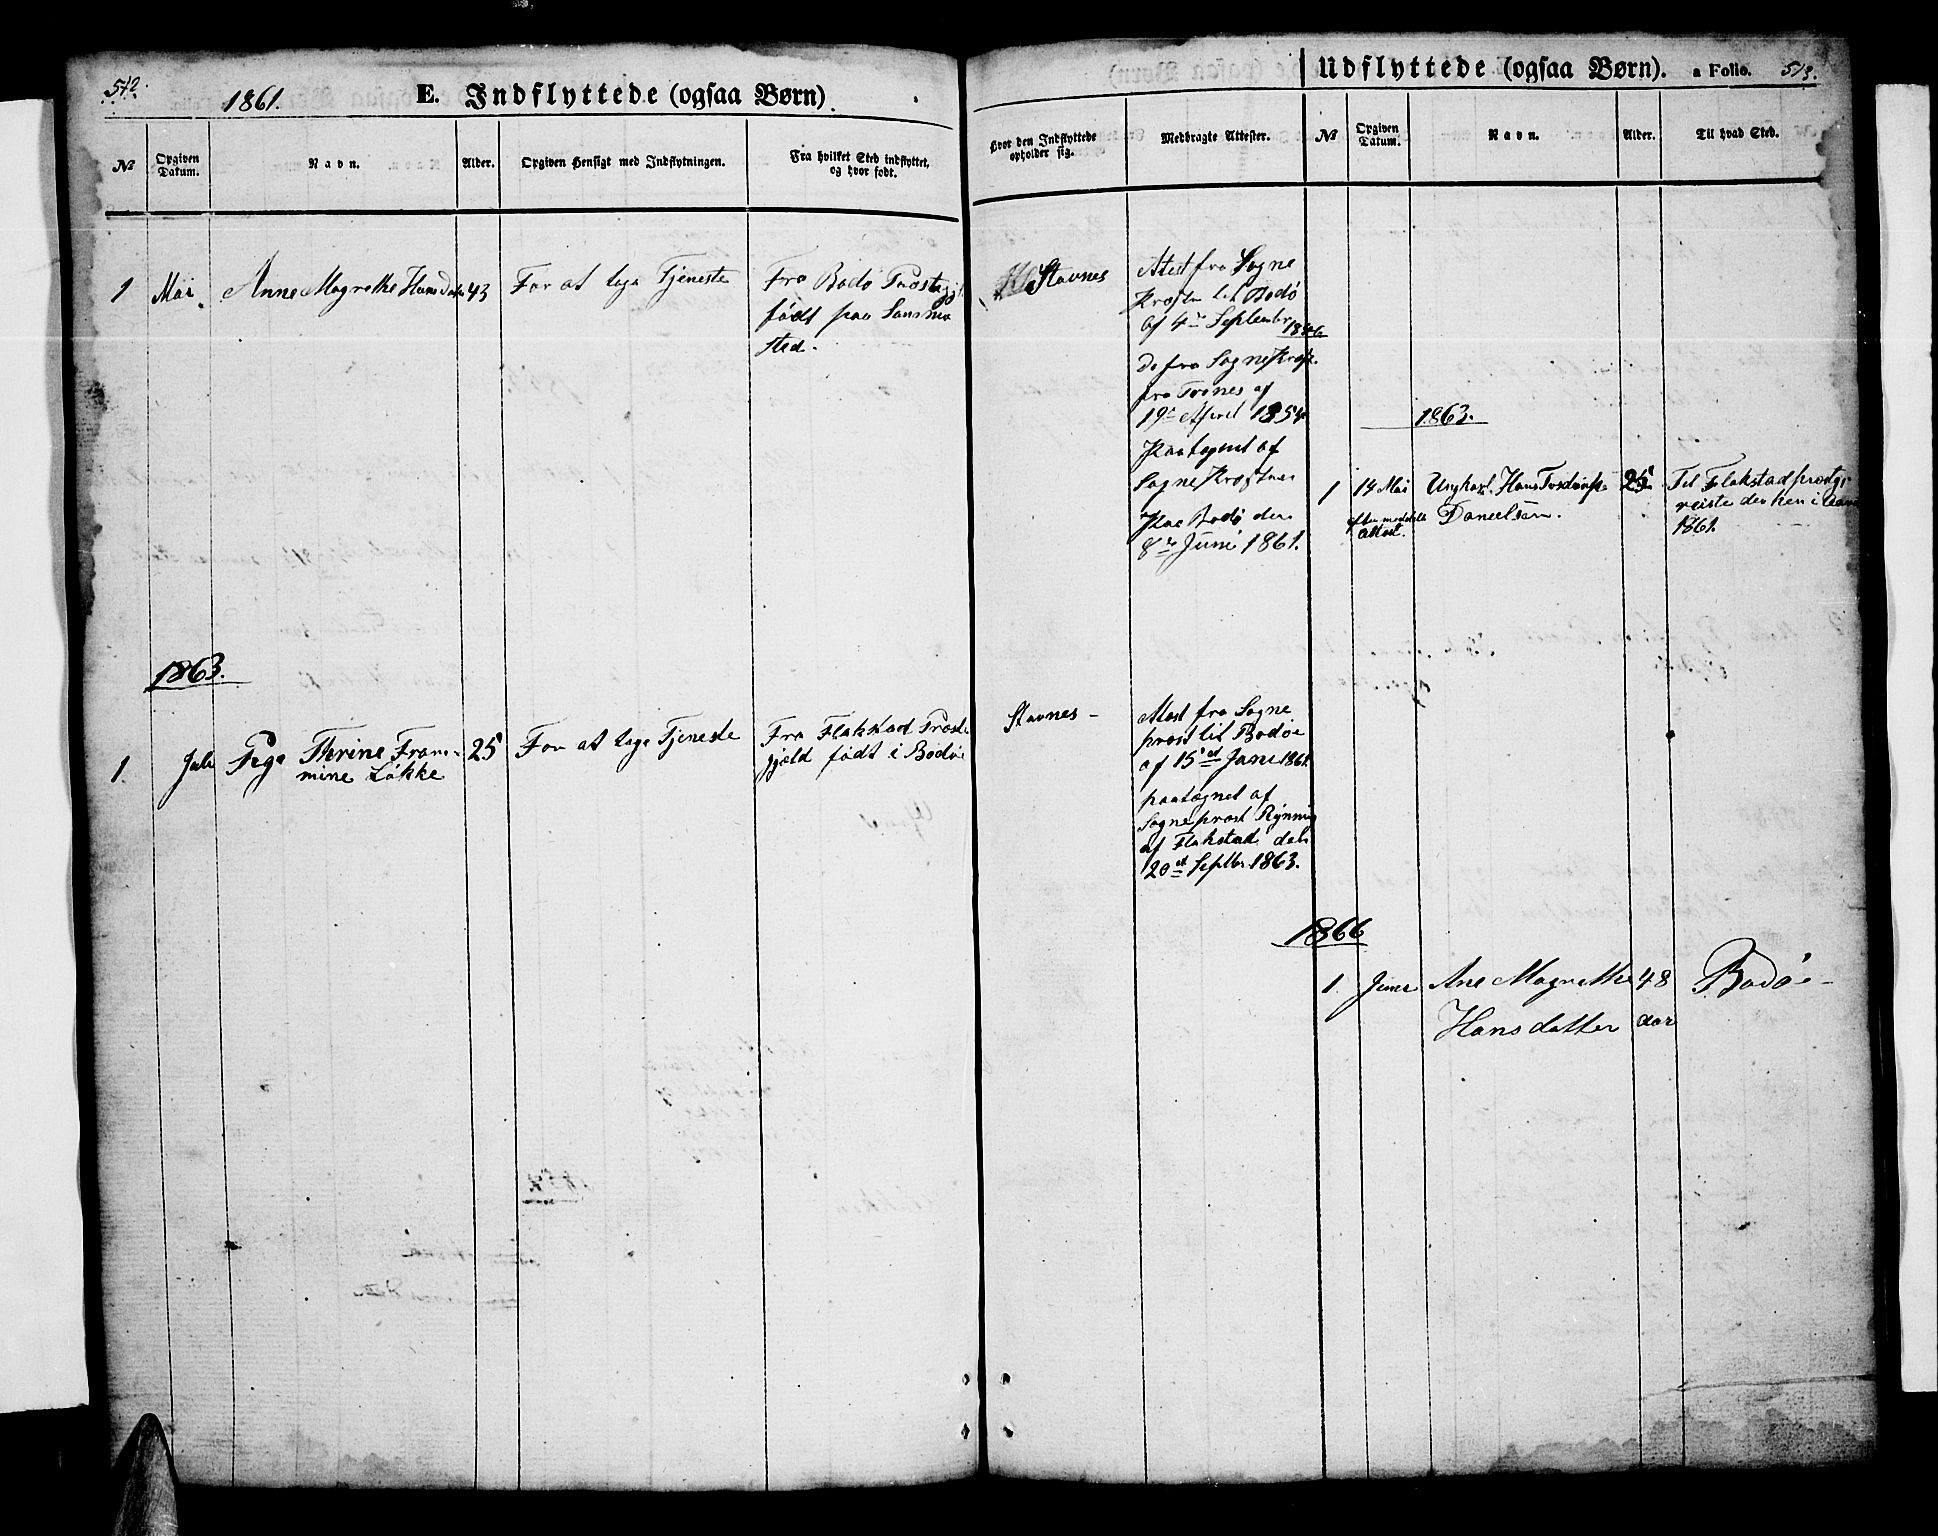 542.
1861.
E. Indflyttede (ogsaa Børn).
№
Opgiven Datum.
Navn.
Alder.
Opgiven Hensigt med Indflytningen.
Fra hvilket Sted indflyttet, og hvor født.
Hvor den Indflyttede opholder sig.
Medbragte Attester.
1
Mai
Anne Magrethe Hansdatr
43
For at tage Tjeneste
Fra Bodø Præstegjl
født paa Samme
Sted.
Støvnes
Atest fra Sogne
Præsten til Bodø
af 4de September 1846
do fra SognePræst
fra Trones af
19de April 1854
Paategnet af
SognePræsten
Paa Bodø den
8de Juni 1861.
1863.
1.
Juli
Pige Therine From-
mine Løkke
25
For at tage Tjeneste
Fra Flakstad Præste
gjæld født i Bodøe
Støvnes -
Atest fra Sogne
præst til Bodøe
af 15de Juni 1861.
paategnet af
Sognepræst Rynning
af Flakstad den
20de Septbr 1863.
Udflyttede (ogsaa Børn).
a Folio. 513.
№
Opgiven Datum.
Navn.
Alder.
Til hvad Sted.
1863.
1
14 Mai
efter meddelt
Attest.
Ungkarl. Hans
Danielsen.
25
Til Flakstad præstgj
reiste der hen i
1861.
1866
1.
Juni
Ane Magrethe
Hansdatter
48
aar
Bodøe -